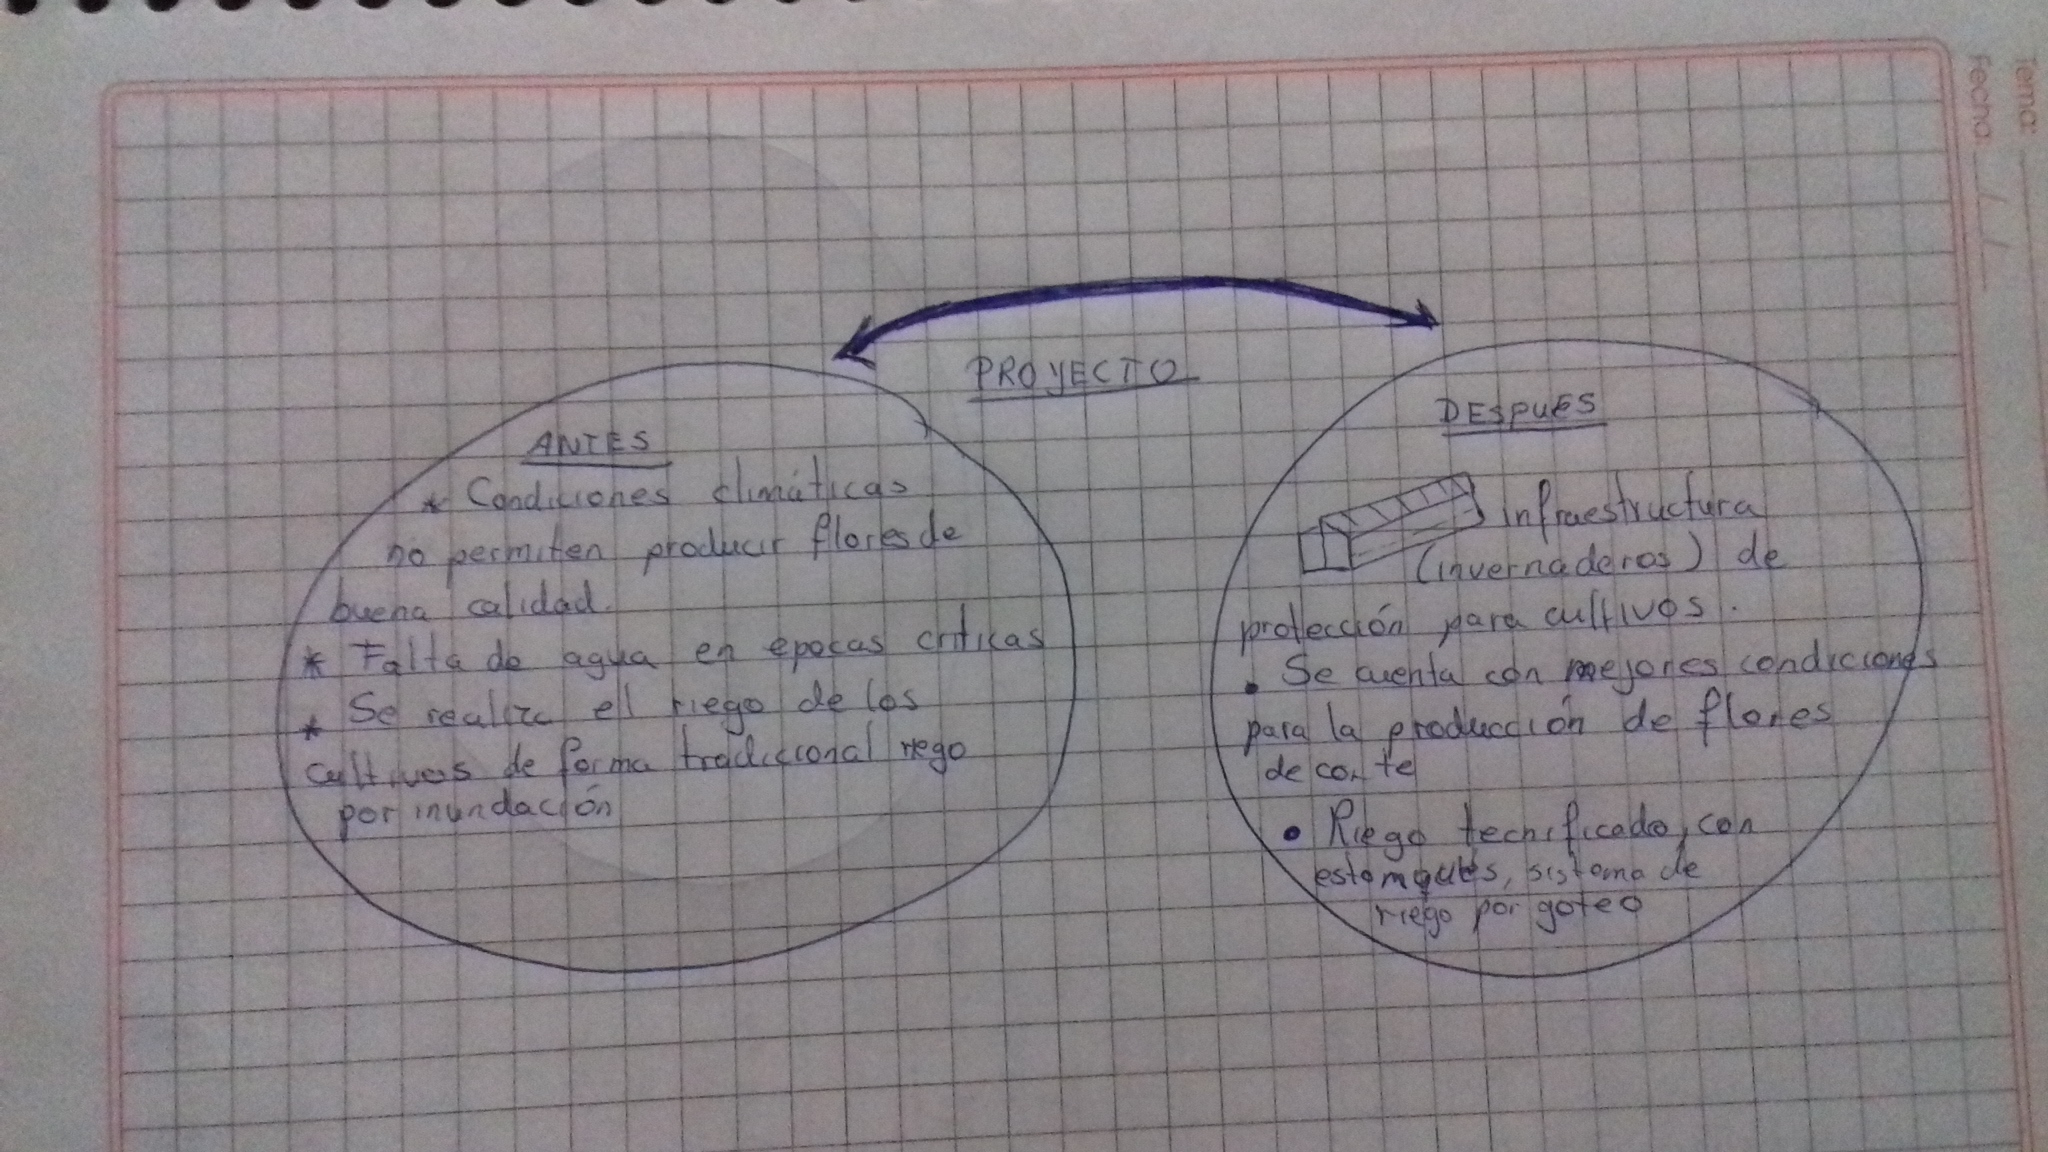 Tema:
Fecha: / /
PROYECTO
ANTES
* Condiciones climáticas
no permiten producir flores de
buena calidad.
* Falta de agua en epocas criticas
* Se realiza el riego de los
cultivos de forma tradicional riego
por inundación
DESPUES
infraestructura
(invernaderos) de
protección para cultivos.
• Se cuenta con mejores condiciones
para la producción de flores
de corte
• Riego tecnificado, con
estanques, sistema de
riego por goteo